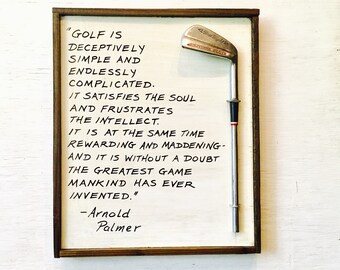 "GOLF IS
DECEPTIVELY
SIMPLE AND
ENDLESSLY
COMPLICATED.
IT SATISFIES THE SOUL
AND FRUSTRATES
THE INTELLECT.
IT IS AT THE SAME TIME
REWARDING AND MADDENING-
AND IT IS WITHOUT A DOUBT
THE GREATEST GAME
MANKIND HAS EVER
INVENTED."
-Arnold
Palmer